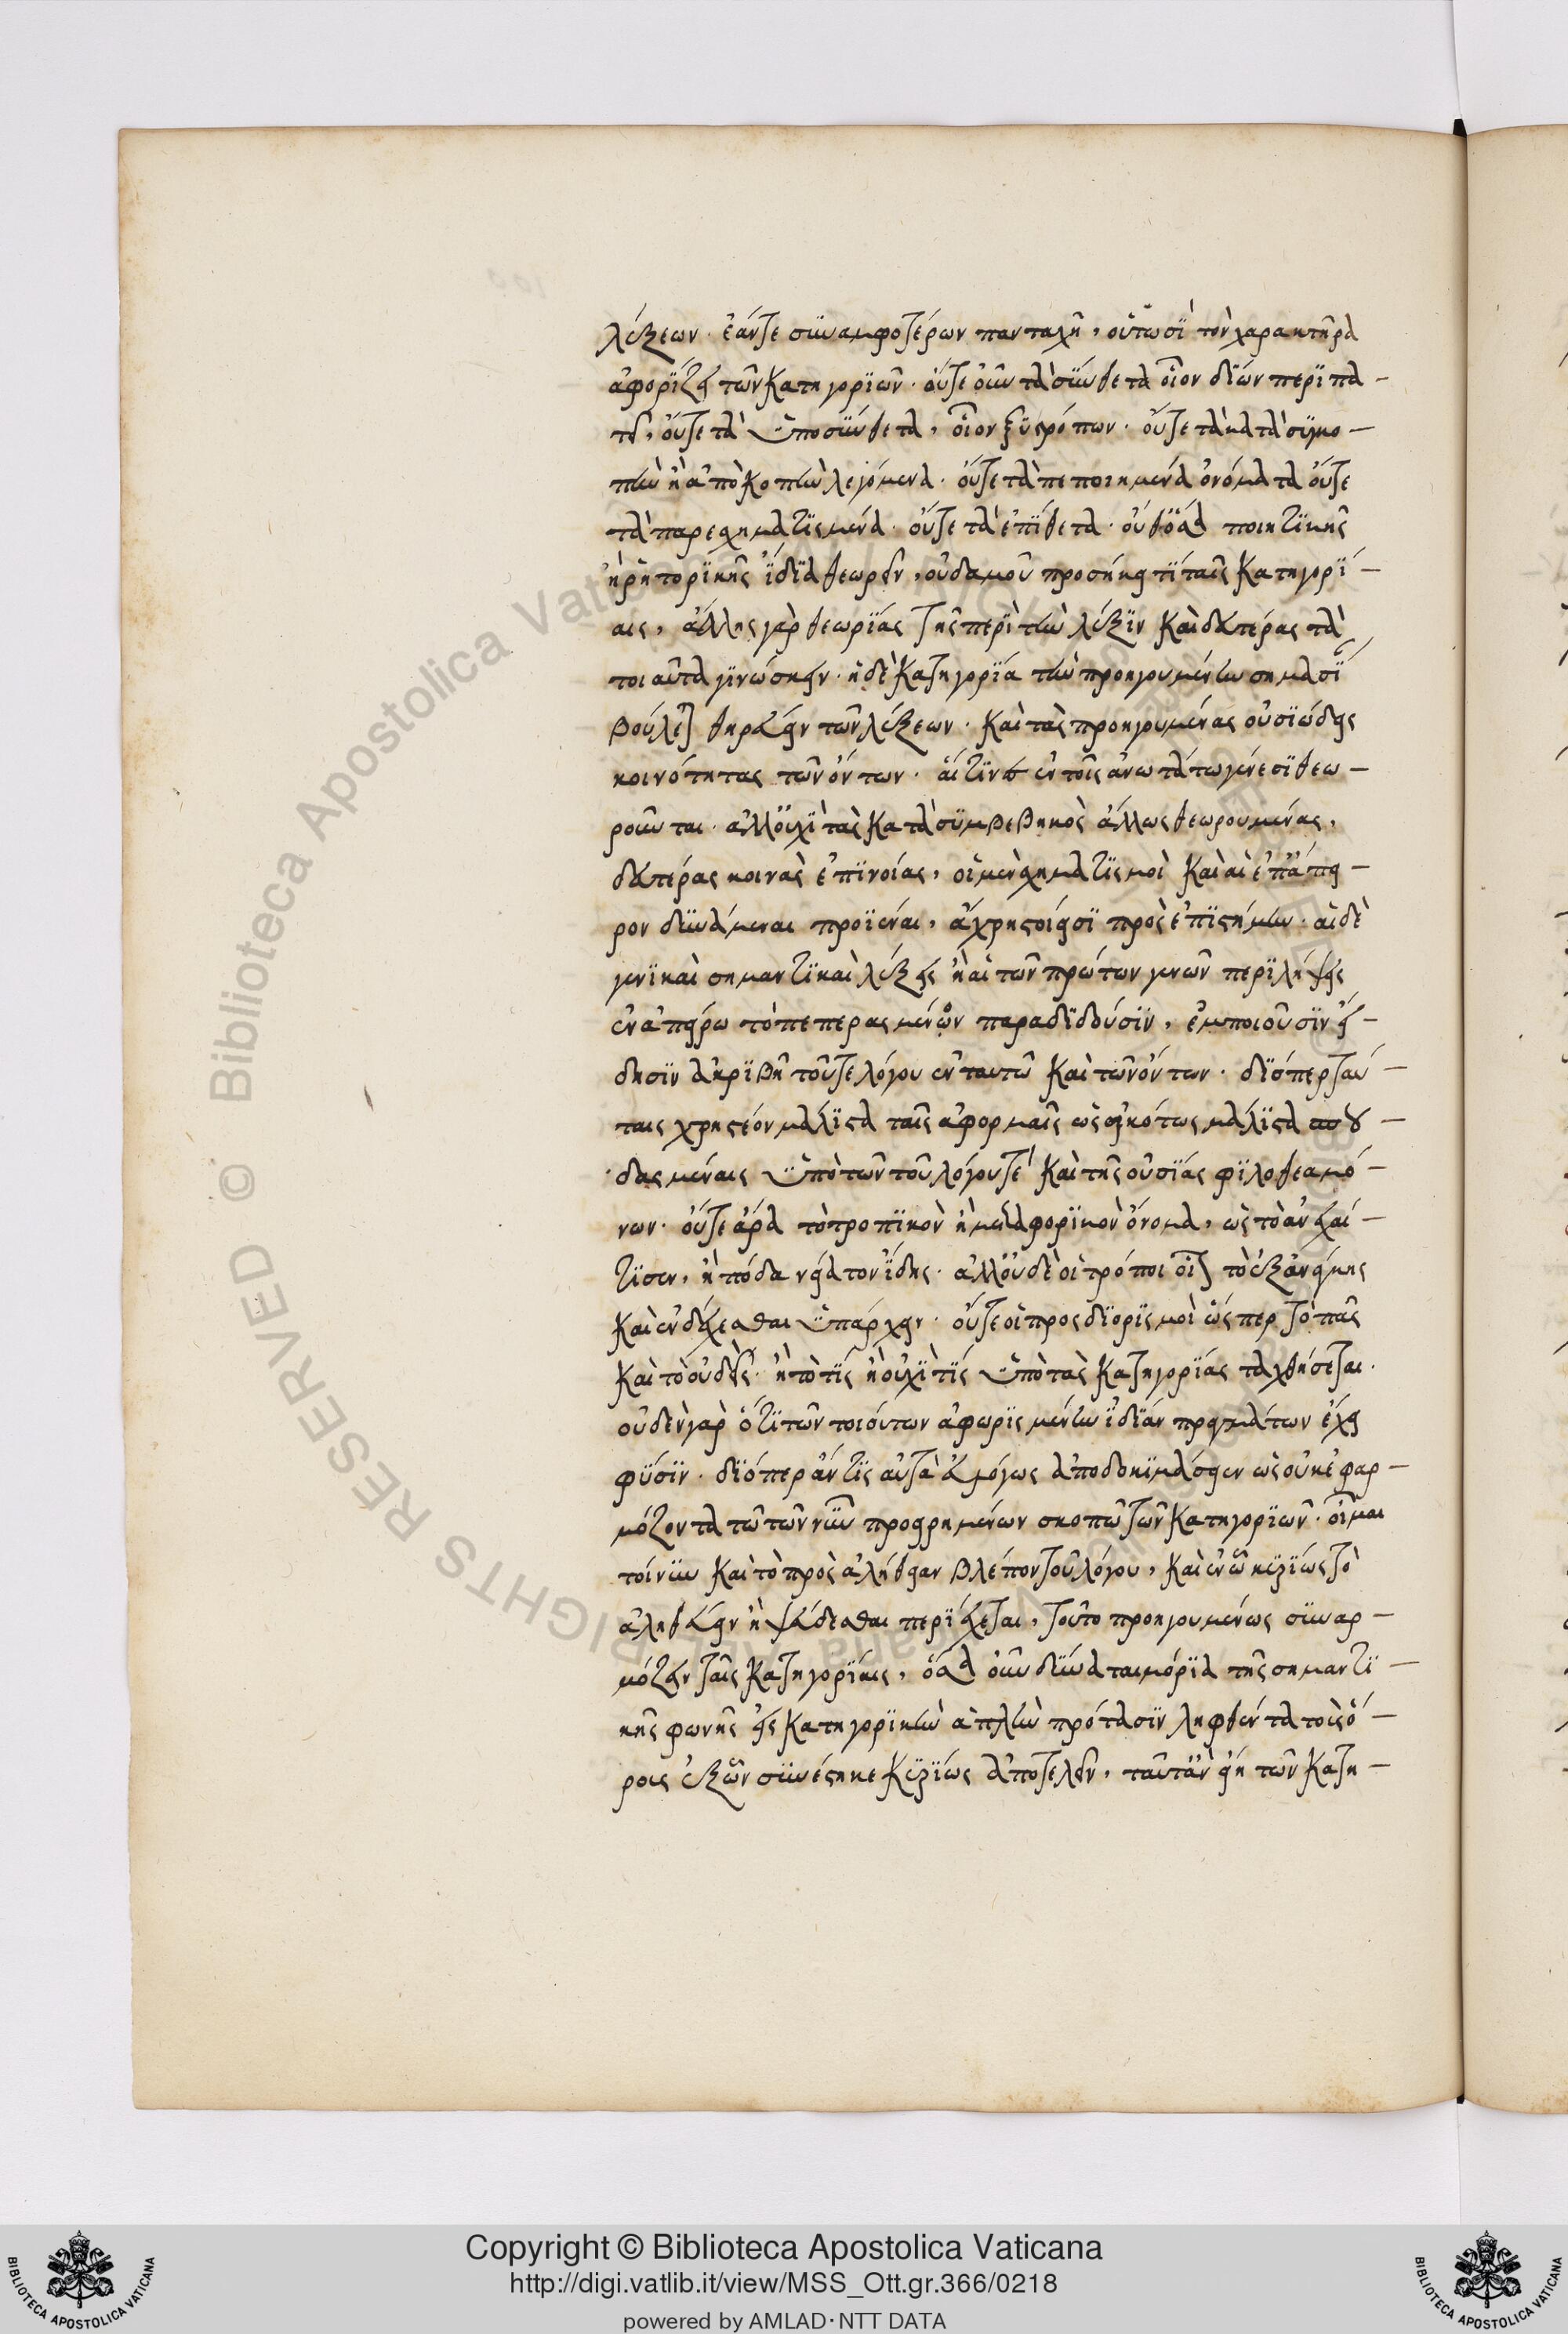 λέξεων. ἐάντε συναμφοτέρων πανταχῆ, οὑτωσὶ τὸν χαρακτῆρα
ἀφορίζει τῶν κατηγοριῶν. οὔτε οὖν τὰ σύνθετα οἷον δίων περιπα-
τεῖ, οὔτε τὰ ὑποσύνθετα, οἷον ξυερόπων. οὔτε τὰ κατὰ συγκο-
πὴν ἢ ἀποκοπὴν λεγόμενα. οὔτε τὰ πεποιημένα ὀνόματα οὔτε
τὰ παρεσχηματισμένα. οὔτε τὰ ἐπίθετα. οὐθ' ὅσα ποιητικῆς
ἢ ῥητορικῆς ἴδια θεωρεῖν, οὐδαμοῦ προσήκει τί ταῖς κατηγορί-
αις, ἄλλης γὰρ θεωρίας τῆς περὶ τὴν λέξιν καὶ δευτέρας τὰ
τοιαῦτα γινώσκειν. ἡ δὲ κατηγορία τὴν προηγουμένην σημασί
βούλεται θηρεύειν τῶν λέξεων. καὶ τὰς προηγουμένας οὐσιώδεις
κοινότητας τῶν ὄντων. αἵτινες ἐν τοῖς ἀνωτάτω γένεσι θεω-
ροῦνται. ἀλλ' οὐχὶ τὰς κατὰ συμβεβηκὸς ἄλλως θεωρουμένας,
δευτέρας κοινὰς ἐπινοίας, οἱ μὲν σχηματισμοὶ καὶ αἱ ἐπ' ἄπει-
ρον δυνάμεναι προϊέναι, ἄχρηστοί εἰσι πρὸς ἐπιστήμην. αἱ δὲ
γενικαὶ σημαντικαὶ λέξεις ἢ αἱ τῶν πρώτων γενῶν περιλήψεις
ἐν ἀπείρω τὸ πεπερασμένον παραδιδοῦσιν, ἐμποιοῦσιν εἴ-
δησιν ἀκριβῆ τοῦτε λόγου ἐν ταυτῶ καὶ τῶν ὄντων. διόπερ ταύ-
ταις χρηστέον μάλιστα ταῖς ἀφορμαῖς ὡς εἰκότως μάλιστα σπου-
δασμέναις ὑπὸ τῶν τοῦ λόγου τὲ καὶ τῆς οὐσίας φιλοθεαμό-
νων. οὔτε ἄρα τὸ τροπικὸν ἢ μεταφορικὸν ὄνομα, ὡς τὸ ἀνεχαί-
τισεν, ἢ πόδα νείατον ἴδης. ἀλλ' οὐδὲ οἱ τρόποι οἷον τὸ ἐξ ἀνάγκης
καὶ ἐνδέχεσθαι ὑπάρχειν. οὔτε οἱ προσδιορισμοὶ ὥσπερ τὸ πᾶς
καὶ τὸ οὐδείς. ἢ τὸ τὶς ἢ οὐχὶ τὶς ὑπὸ τὰς κατηγορίας ταχθήσεται.
οὐδὲν γὰρ ὅτι τῶν τοιούτων ἀφωρισμένην ἰδίαν πραγμάτων ἔχει
φύσιν. διόπερ ἄν τις αὐτὰ εὐλόγως ἀποδοκιμάσειεν ὡς οὐκ ἐφαρ-
μόζοντα τῶ τῶν νῦν προειρημένων σκοπῶ τῶν κατηγοριῶν. οἶμαι
τοίνυν καὶ τὸ πρὸς ἀλήθειαν βλέπον τοῦ λόγου, καὶ ἐν ὧ κυρίως τὸ
ἀληθεύειν ἢ ψεύδεσθαι περιέχεται, τοῦτο προηγουμένως συναρ-
μόζειν ταῖς κατηγορίαις, ὅσα οὖν δύναται μόρια τῆς σημαντι-
κῆς φωνῆς εἰς κατηγορικὴν ἁπλῆν πρότασιν ληφθέντα τοὺς ὅ-
ρους ἐξ ὧν συνέστηκε κυρίως ἀποτελεῖν, ταῦτ' ἂν εἴη τῶν κατη-
Copyright © Biblioteca Apostolica Vaticana
http://digi.vatlib.it/view/MSS_Ott.gr.366/0218
powered by AMLAD·NTT DATA